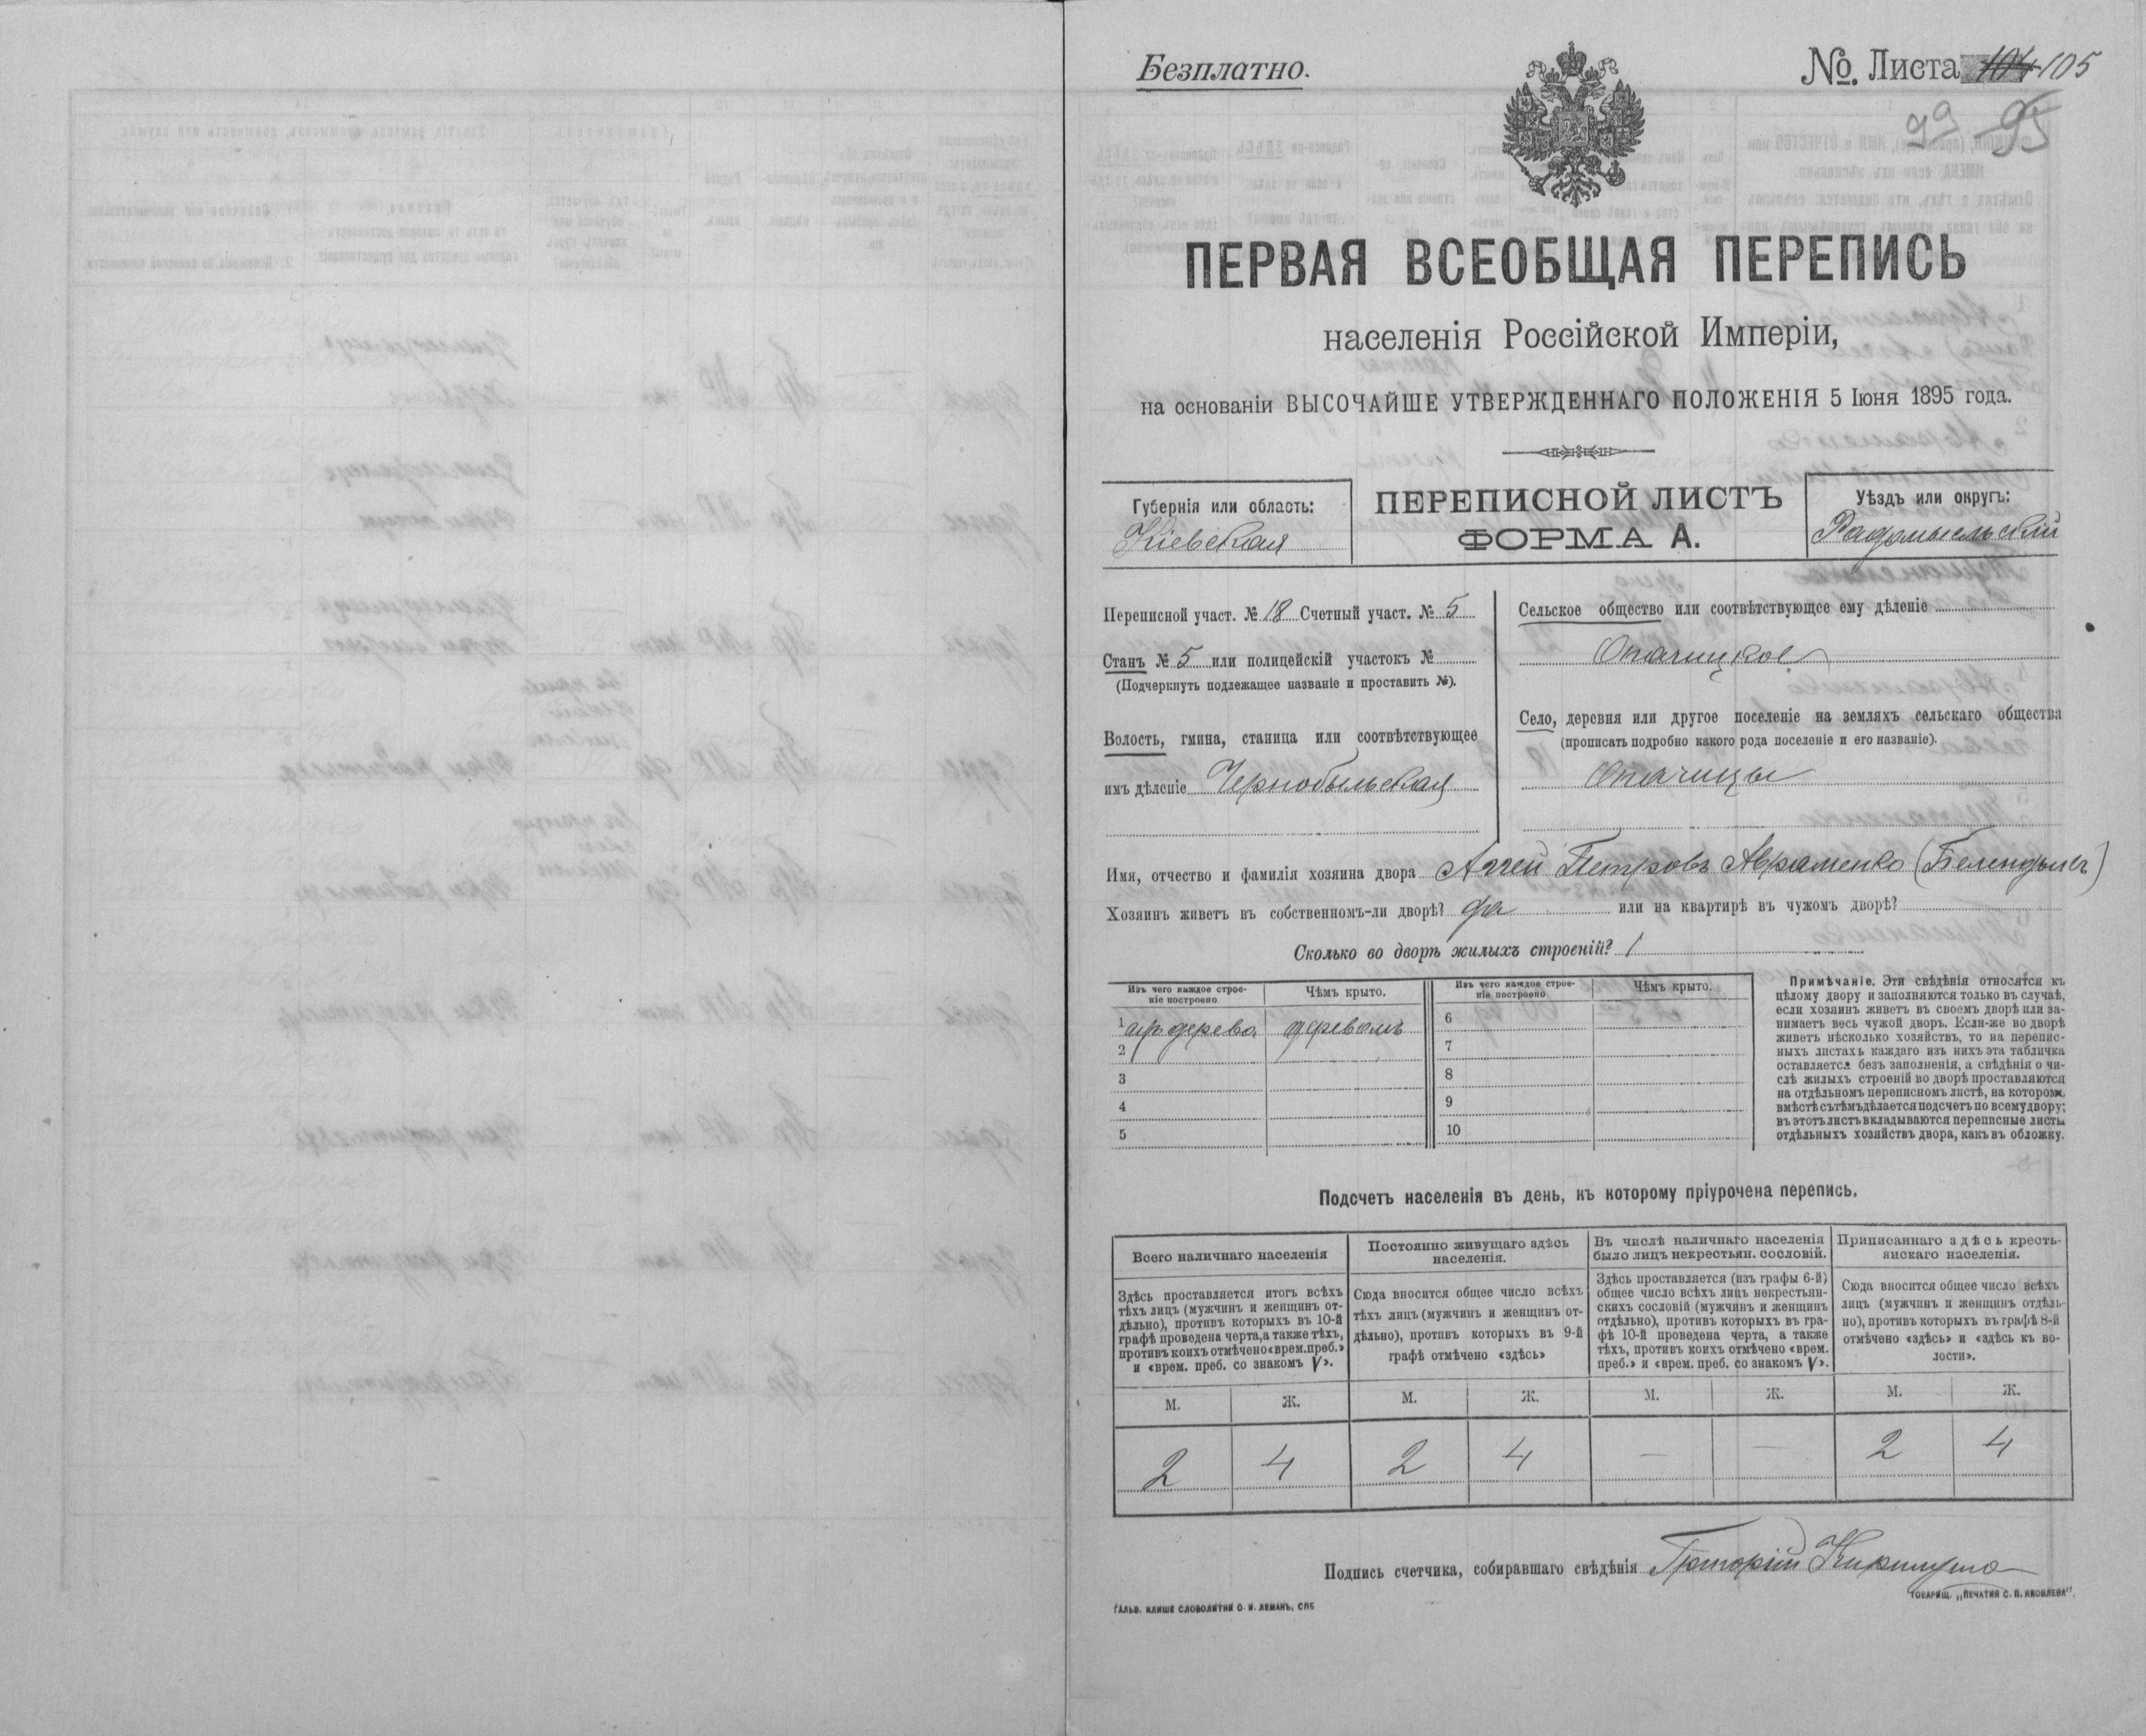 Безплатно.
№ Листа 104 105
99 95
ПЕРВАЯ ВСЕОБЩАЯ ПЕРЕПИСЬ
населенія Россійской Имперіи,
на основаніи ВЫСОЧАЙШЕ УТВЕРЖДЕННАГО ПОЛОЖЕНІЯ 5 Іюня 1895 года.
Губернія или область:
Кіевская
ПЕРЕПИСНОЙ ЛИСТЪ
ФОРМА А.
Уѣздъ или округъ:
Радомысльскій
Переписной участ. № 18 Счетный участ. № 5
Станъ № 5 или полицейскій участокъ №
(Подчеркнуть подлежащее названіе и проставить №).
Волость, гмина, станица или соотвѣтствующее
имъ дѣленіе Чернобыльская
Сельское общество или соотвѣтствующее ему дѣленіе
Опачицкое
Село, деревня или другое поселеніе на земляхъ сельскаго общества
(прописать подробно какого рода поселеніе и его названіе).
Опачицы
Имя, отчество и фамилія хозяина двора Петровъ Авраменко
Хозяинъ живетъ въ собственномъ-ли дворѣ? да или на квартирѣ въ чужомъ дворѣ?
Сколько во дворѣ жилыхъ строеній? 1
Изъ чего каждое строе-
ніе построено
Чѣмъ крыто.
Изъ чего каждое строе-
ніе построено
Чѣмъ крыто.
1 изъ дерева деревомъ
2
3
4
5
6
7
8
9
10
Примѣчаніе. Эти свѣдѣнія относятся къ
цѣлому двору и заполняются только въ случаѣ,
если хозяинъ живетъ въ своемъ дворѣ или за-
нимаетъ весь чужой дворъ. Если-же во дворѣ
живетъ нѣсколько хозяйствъ, то на перепис-
ныхъ листахъ каждаго изъ нихъ эта табличка
оставляется безъ заполненія, а свѣдѣнія о чи-
слѣ жилыхъ строеній во дворѣ проставляются
на отдѣльномъ переписномъ листѣ, на которомъ
вмѣстѣ съ тѣмъ дѣлается подсчетъ по всему двору;
въ этотъ листъ вкладываются переписные листы
отдѣльныхъ хозяйствъ двора, какъ въ обложку.
Подсчетъ населенія въ день, къ которому пріурочена перепись.
Всего наличнаго населенія
Постоянно живущаго здѣсь
населенія.
Въ числѣ наличнаго населенія
было лицъ некрестьян. сословій.
Приписаннаго здѣсь кресть-
янскаго населенія.
Здѣсь проставляется итогъ всѣхъ
тѣхъ лицъ (мужчинъ и женщинъ от-
дѣльно), противъ которыхъ въ 10-й
графѣ проведена черта, а также тѣхъ,
противъ коихъ отмѣчено «врем. преб.»
и «врем. преб. со знакомъ V».
Сюда вносится общее число всѣхъ
тѣхъ лицъ (мужчинъ и женщинъ от-
дѣльно), противъ которыхъ въ 9-й
графѣ отмѣчено «здѣсь»
Здѣсь проставляется (изъ графы 6-й)
общее число всѣхъ лицъ некрестьян-
скихъ сословій (мужчинъ и женщинъ
отдѣльно), противъ которыхъ въ гра-
фѣ 10-й проведена черта, а также
тѣхъ, противъ коихъ отмѣчено «врем.
преб.» и «врем. преб. со знакомъ V».
Сюда вносится общее число всѣхъ
лицъ (мужчинъ и женщинъ отдѣль-
но), противъ которыхъ въ графѣ 8-й
отмѣчено «здѣсь» и «здѣсь къ во-
лости».
М. Ж. М. Ж. М. Ж. М. Ж.
2 4 2 4 — — 2 4
Подпись счетчика, собиравшаго свѣдѣнія Григорій
ГАЛЬВ. КЛИШЕ СЛОВОЛИТНИ О. И. ЛЕМАНЪ, СПБ
ТОВАРИЩ. „ПЕЧАТНЯ С. П. ЯКОВЛЕВА".